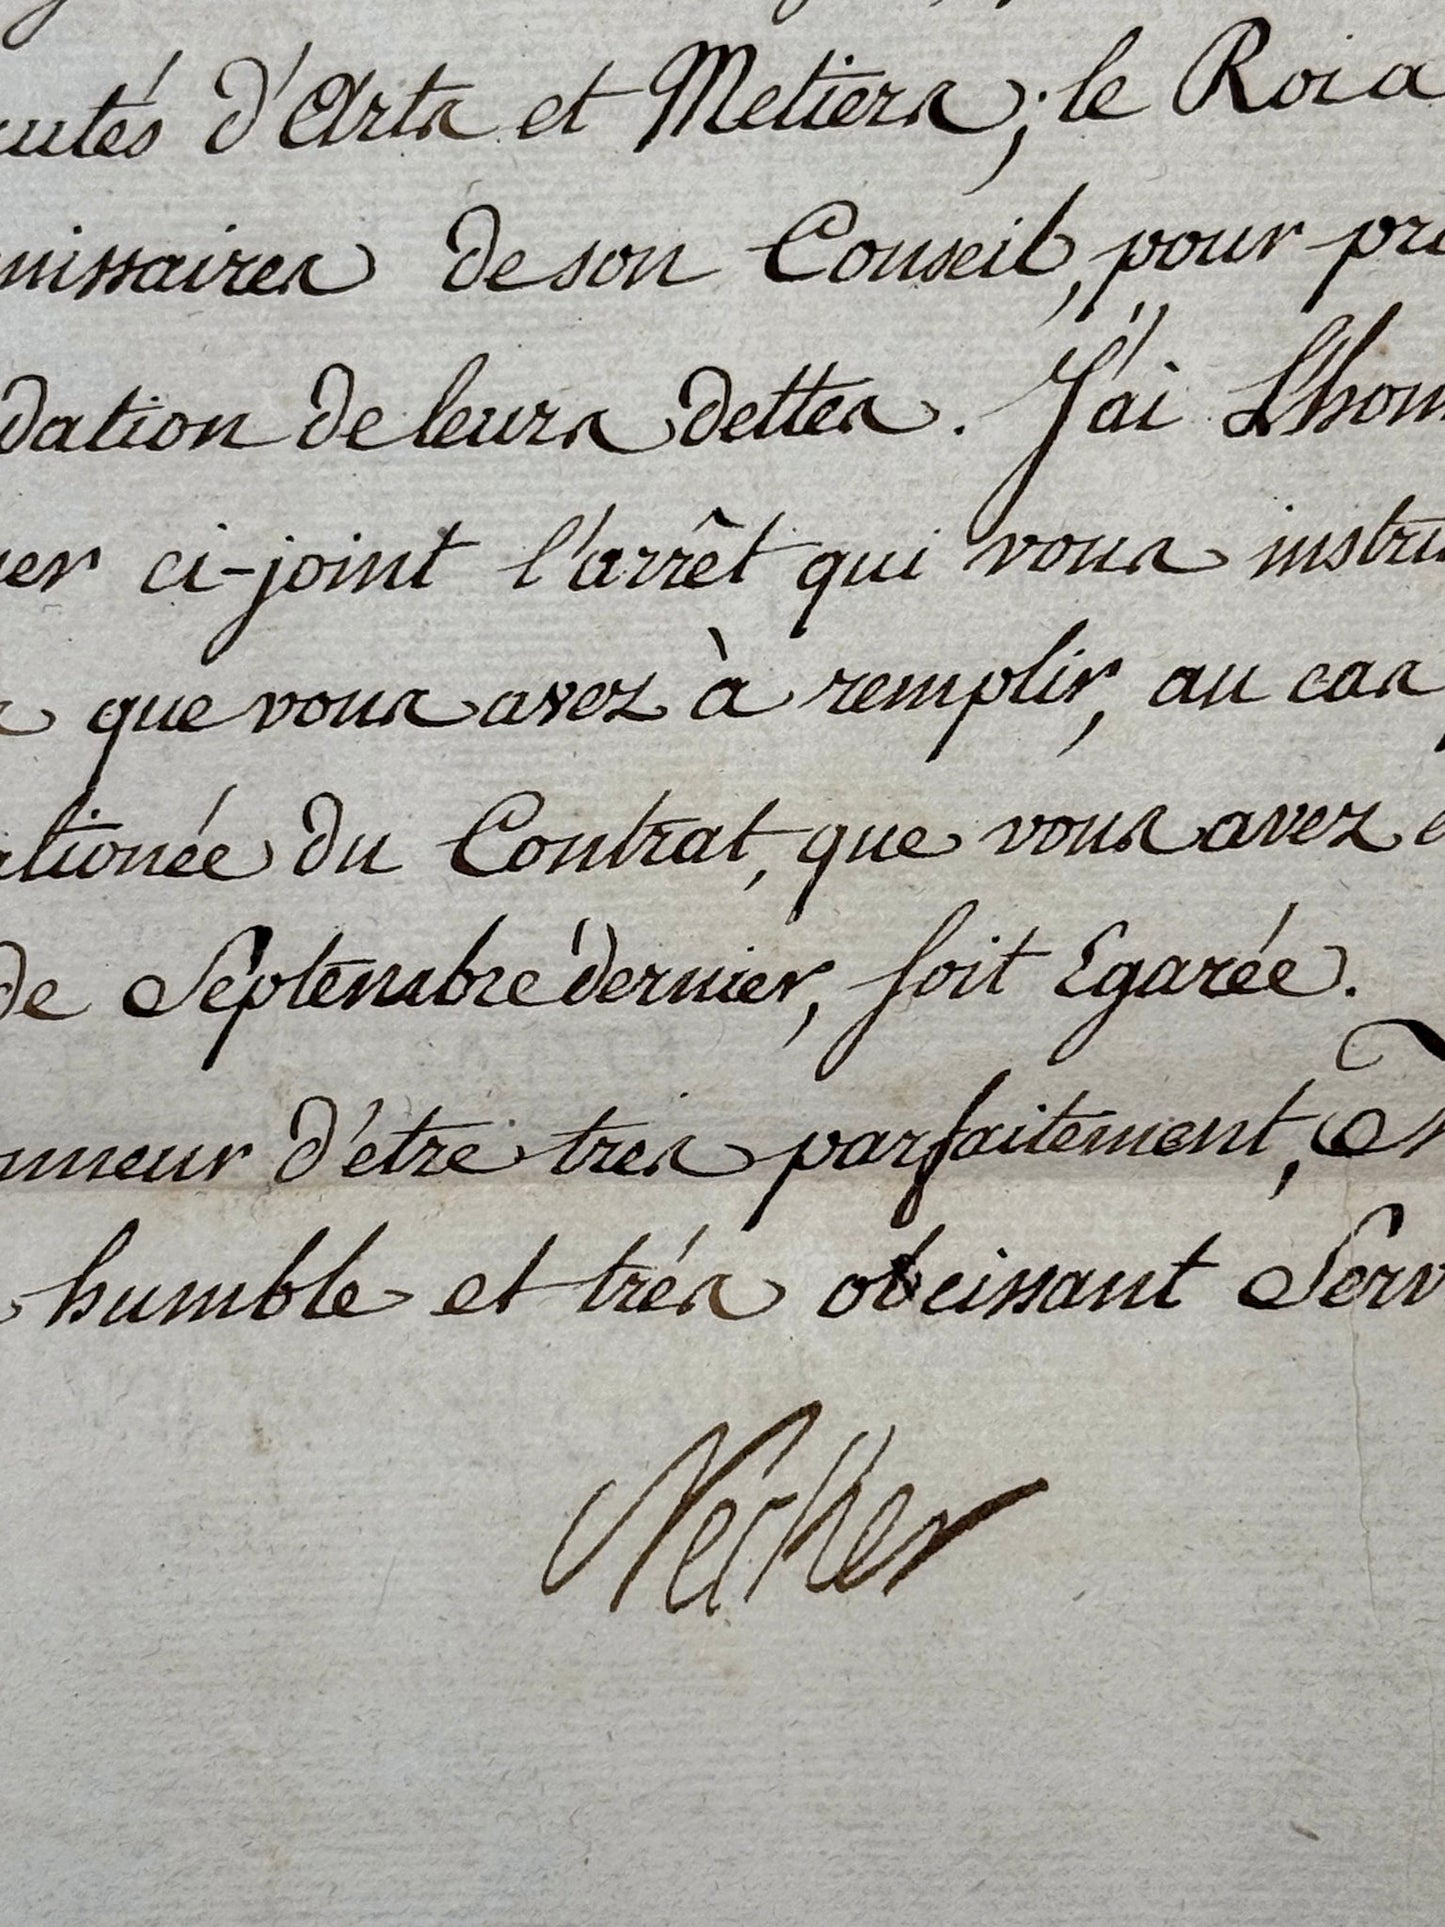 utés d'Arts et Metiers; le Roi a
missaires de son Conseil, pour pr
dation de leurs dettes. J'ai L'hon
er ci-joint l'arrêt qui vous instru
que vous avez à remplir, au cas
ationée du Contrat, que vous avez
de Septembre dernier, soit Egarée.
nneur d'etre tres parfaitement,
humble et trés obeissant Serv
Necker